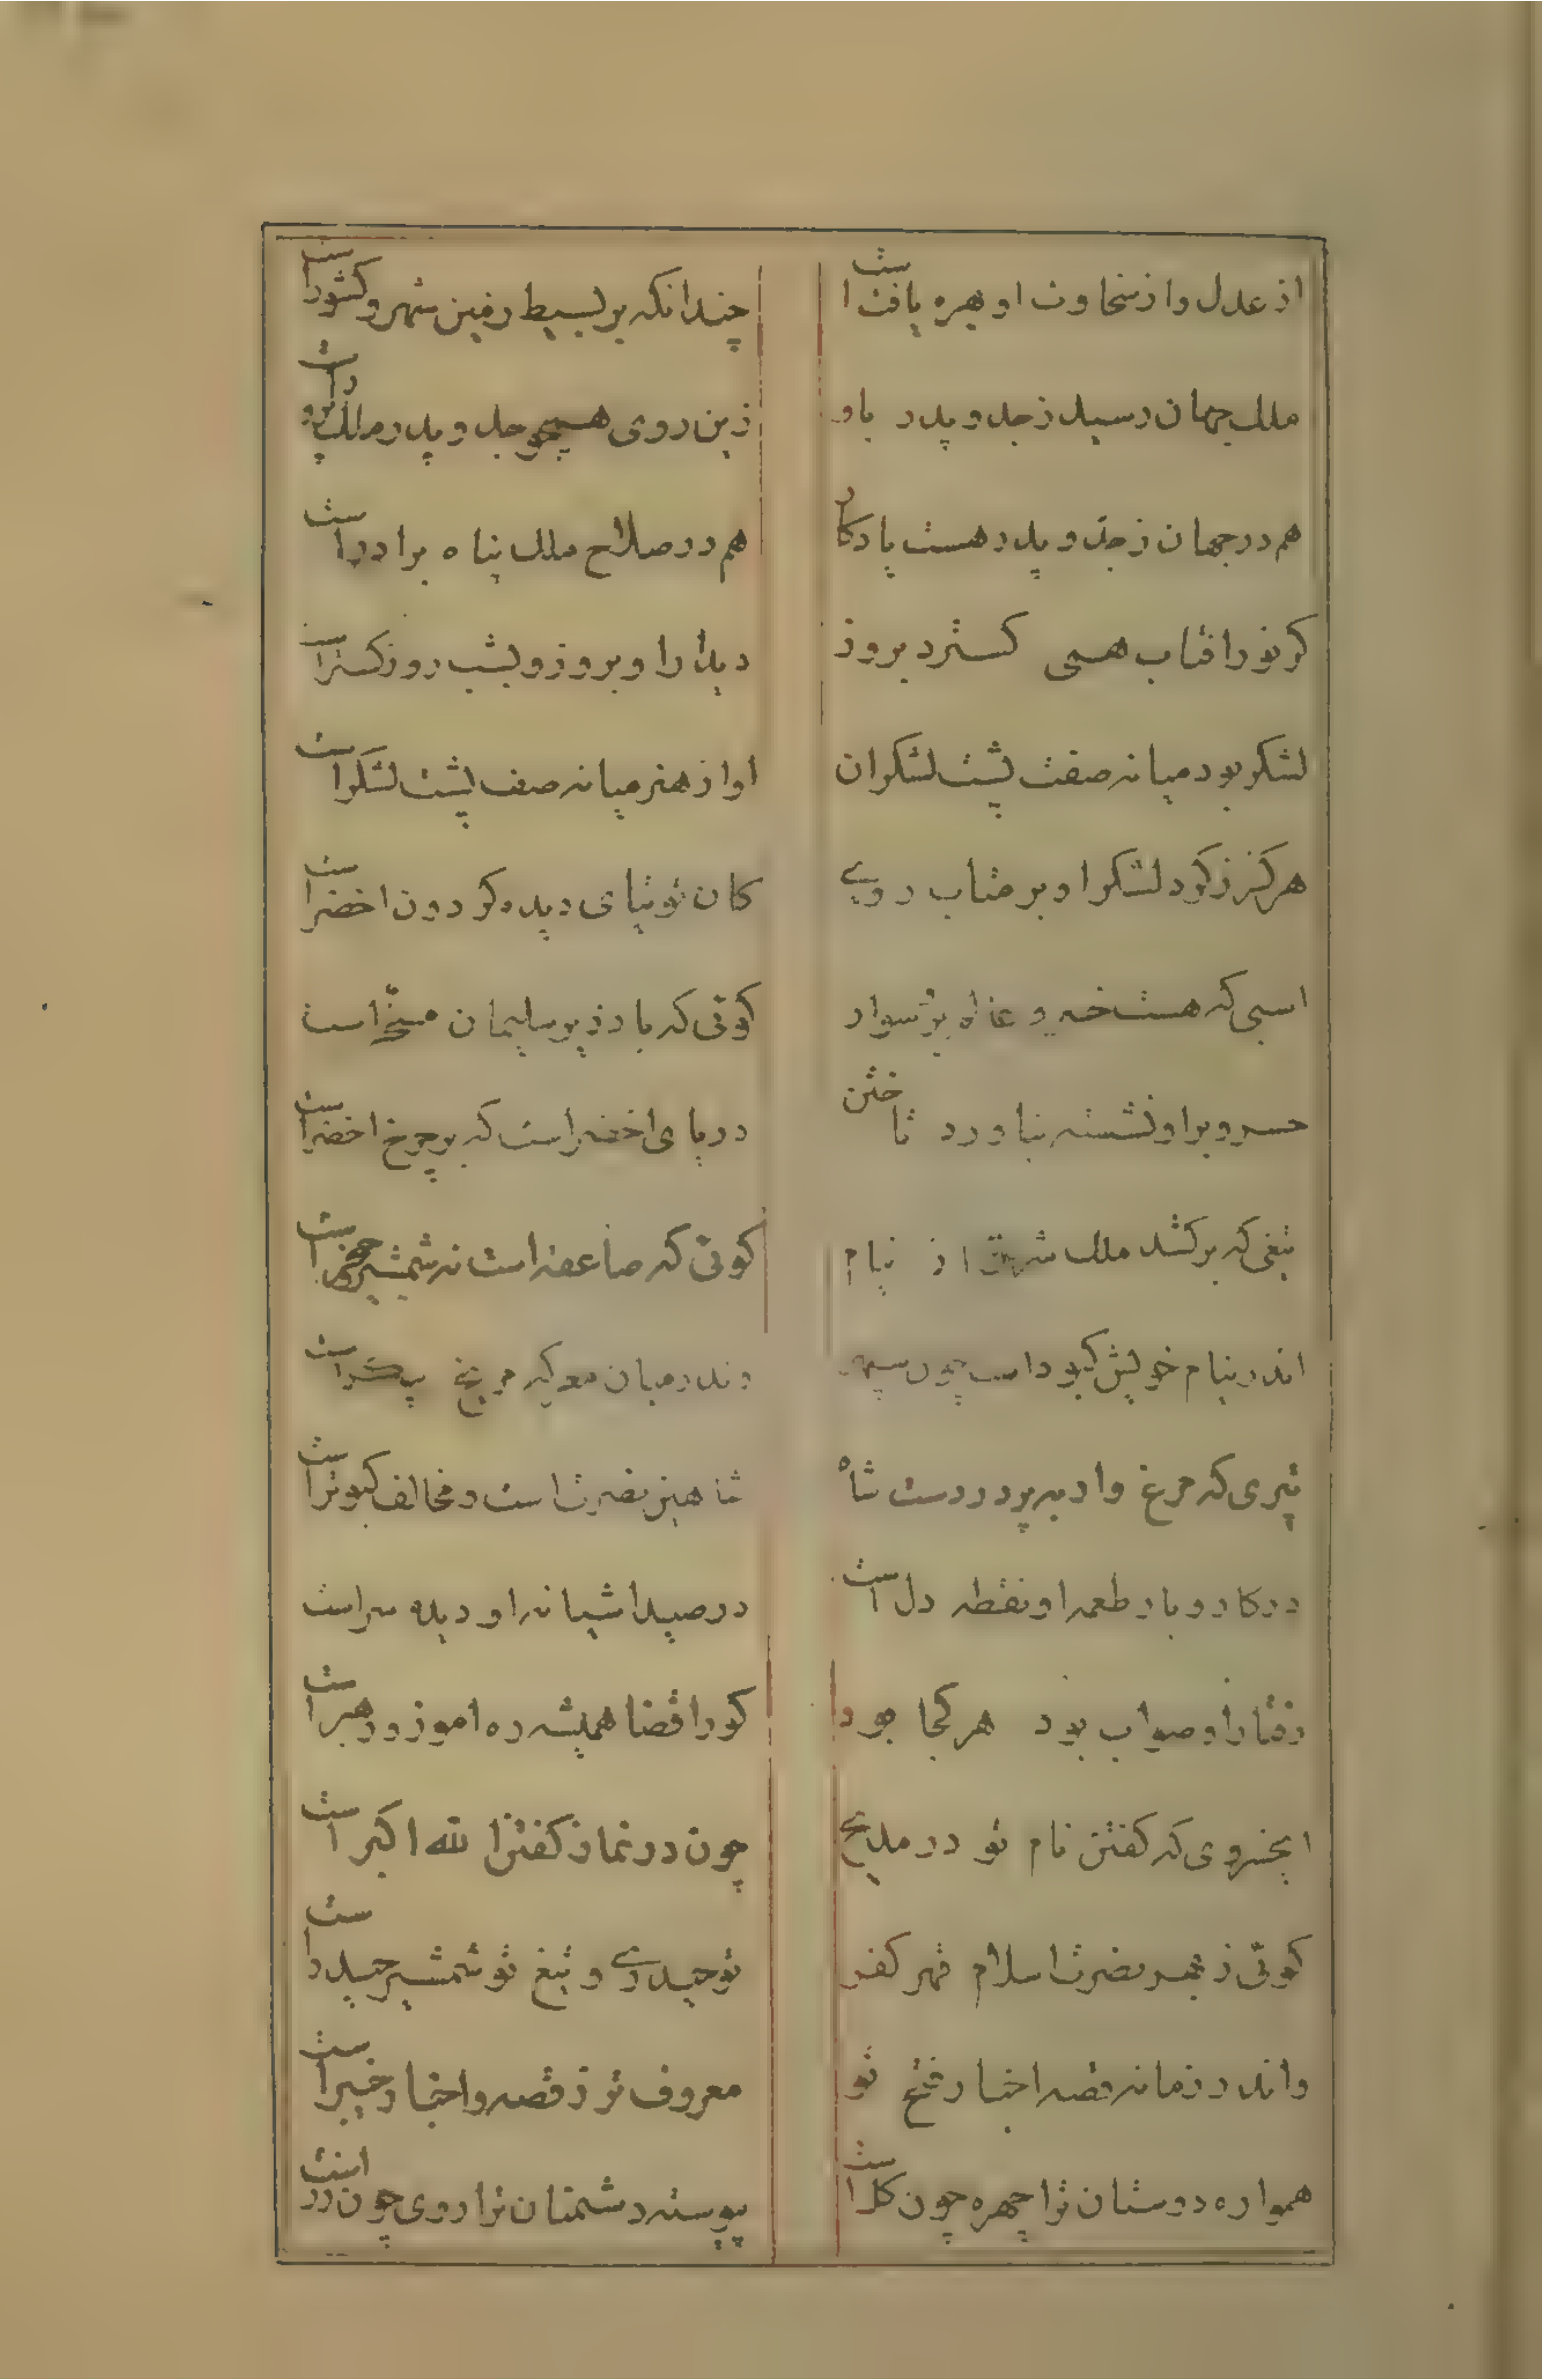 از عدل و از سخاوت او بهره یافت است
چندانکه بر بسیط زمین شهر و کشور است
ملک جهان رسید ز جد و پدر باو
زین روی همچو جد و پدر ملک پرور است
هم در جهان ز جد و پدر هست یادکار
هم در صلاح ملک پناه برادر است
کر نور افتاب همی کسترد بروز
دیدار او بروز و بشب روز کستر است
لشکر بود میانه صفت پشت لشکران
او از هنر میانه صف پشت لشکر است
هرکز ز کرد لشکر او بر متاب روی
کان توتیای دیده کردون اخضر است
اسبی که هست خسرو عادل برو سوار
کوئی که باد زیر سلیمان مسخر است
خسرو بر او نشسته بناورد تاختن
دریای اخضر است که بر چرخ اخضر است
تیغی که برکشد ملک شرق از نیام
کوئی که صاعقه است نه شمشیر و خنجر است
اندر نیام خویش کبود است چون سپهر
وندر میان معرکه مریخ پیکر است
تیری که مرغ وار بپرد ز دست شاه
شاهین نصرت است و مخالف کبوتر است
در کار و بار طعمه او نقطه دل است
در صید اشیانه او دیده سر است
رفتار او صواب بود هر کجا بود
کورا قضا همیشه ره اموز و رهبر است
ای خسروی که کفتن نام تو در مدیح
چون در نماز کفتن الله اکبر است
کوئی ز بهر نصرت اسلام قهر کفر
تو حیدری و تیغ تو شمشیر حیدر است
واندر زمانه قصه اخبار فتح تو
معروف تر ز قصه و اخبار خیبر است
همواره دوستان ترا چهره چون کل است
پیوسته دشمنان ترا روی چون زر است